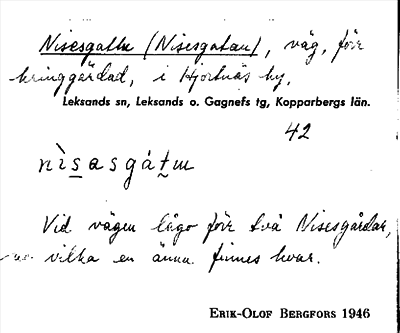 Nisesgattu (Nisesgatan), väg, förr
kringgärdad, i Hjortnäs by.
Leksands sn, Leksands o. Gagnefs tg, Kopparbergs län.
42
nìsasgátm
Vid vägen lågo förr två Nisesgårdar,
vilka en ännu finnes kvar.
ERIK-OLOF BERGFORS 1946